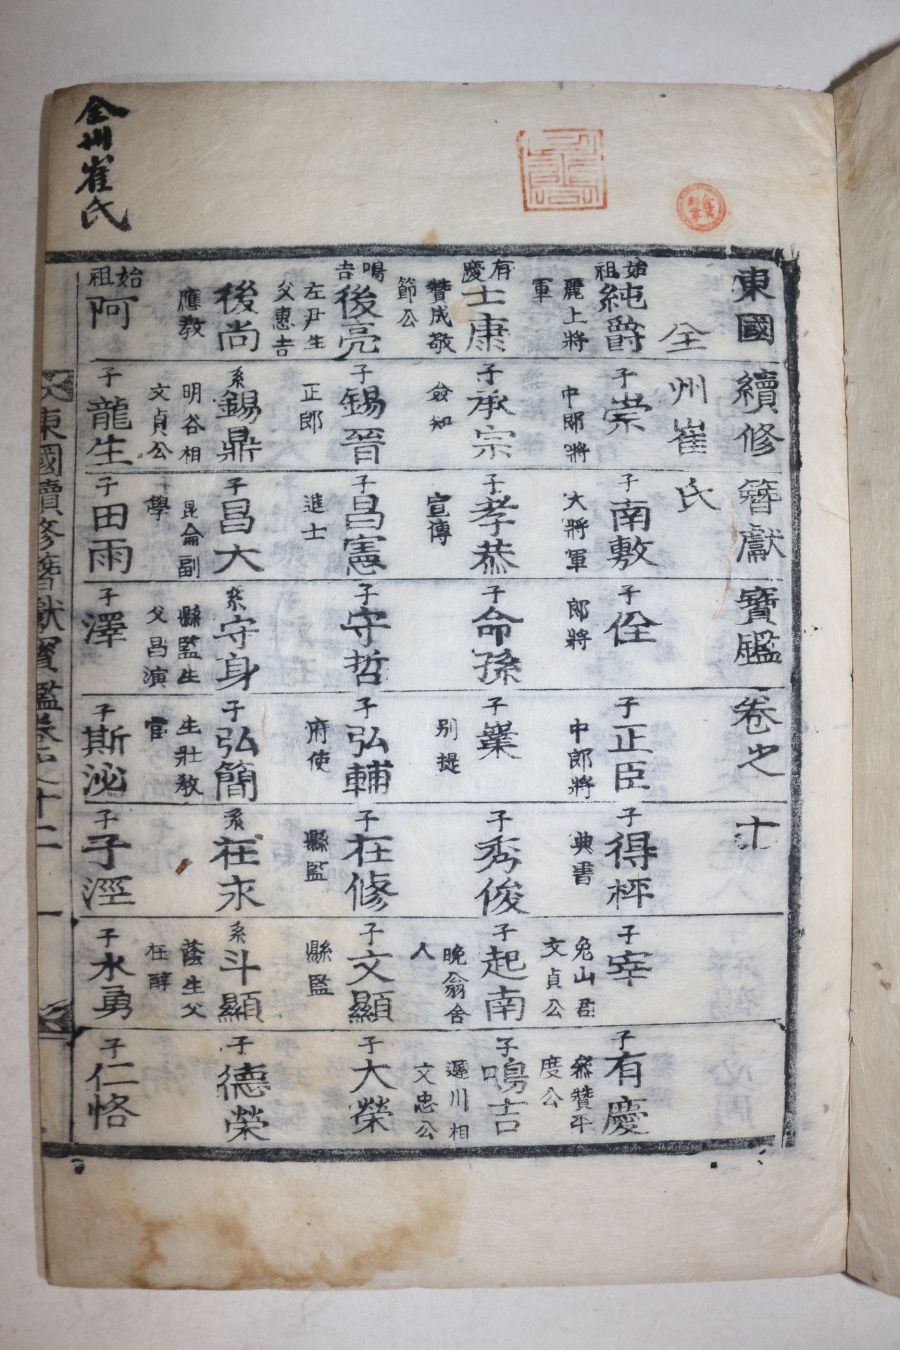 全州崔氏
東國續修簪獻寶鑑卷之十
全州崔氏
始祖純爵 麗上將軍
子崇 中郎將
子南敷 大將軍
子佺 郎將
子正臣 中郎將
子得枰 典書
子宰 完山君文貞公
子有慶 叅贊平度公
有慶士康 贊成敬節公
子承宗 僉知
子孝恭 宣傳
子命孫
子嶪 別提
子秀俊
子起南 晩翁舍人
子鳴吉 遲川相文忠公
鳴吉後亮 左尹生父惠吉
子錫晉 正郎
子昌憲 進士
子守哲
子弘輔 府使
子在修 縣監
子文顯 縣監
子大榮
後尚 應教
系錫鼎 明谷相文貞公
子昌大 昆侖副學
系守身 縣監生父昌演
子弘簡 生壯教官
系在永
系斗顯 蔭生父在醇
子德榮
始祖阿
子龍生
子田雨
子澤
子斯泌
子子涇
子水勇
子仁恪
東國續修簪獻寶鑑卷之十二 一